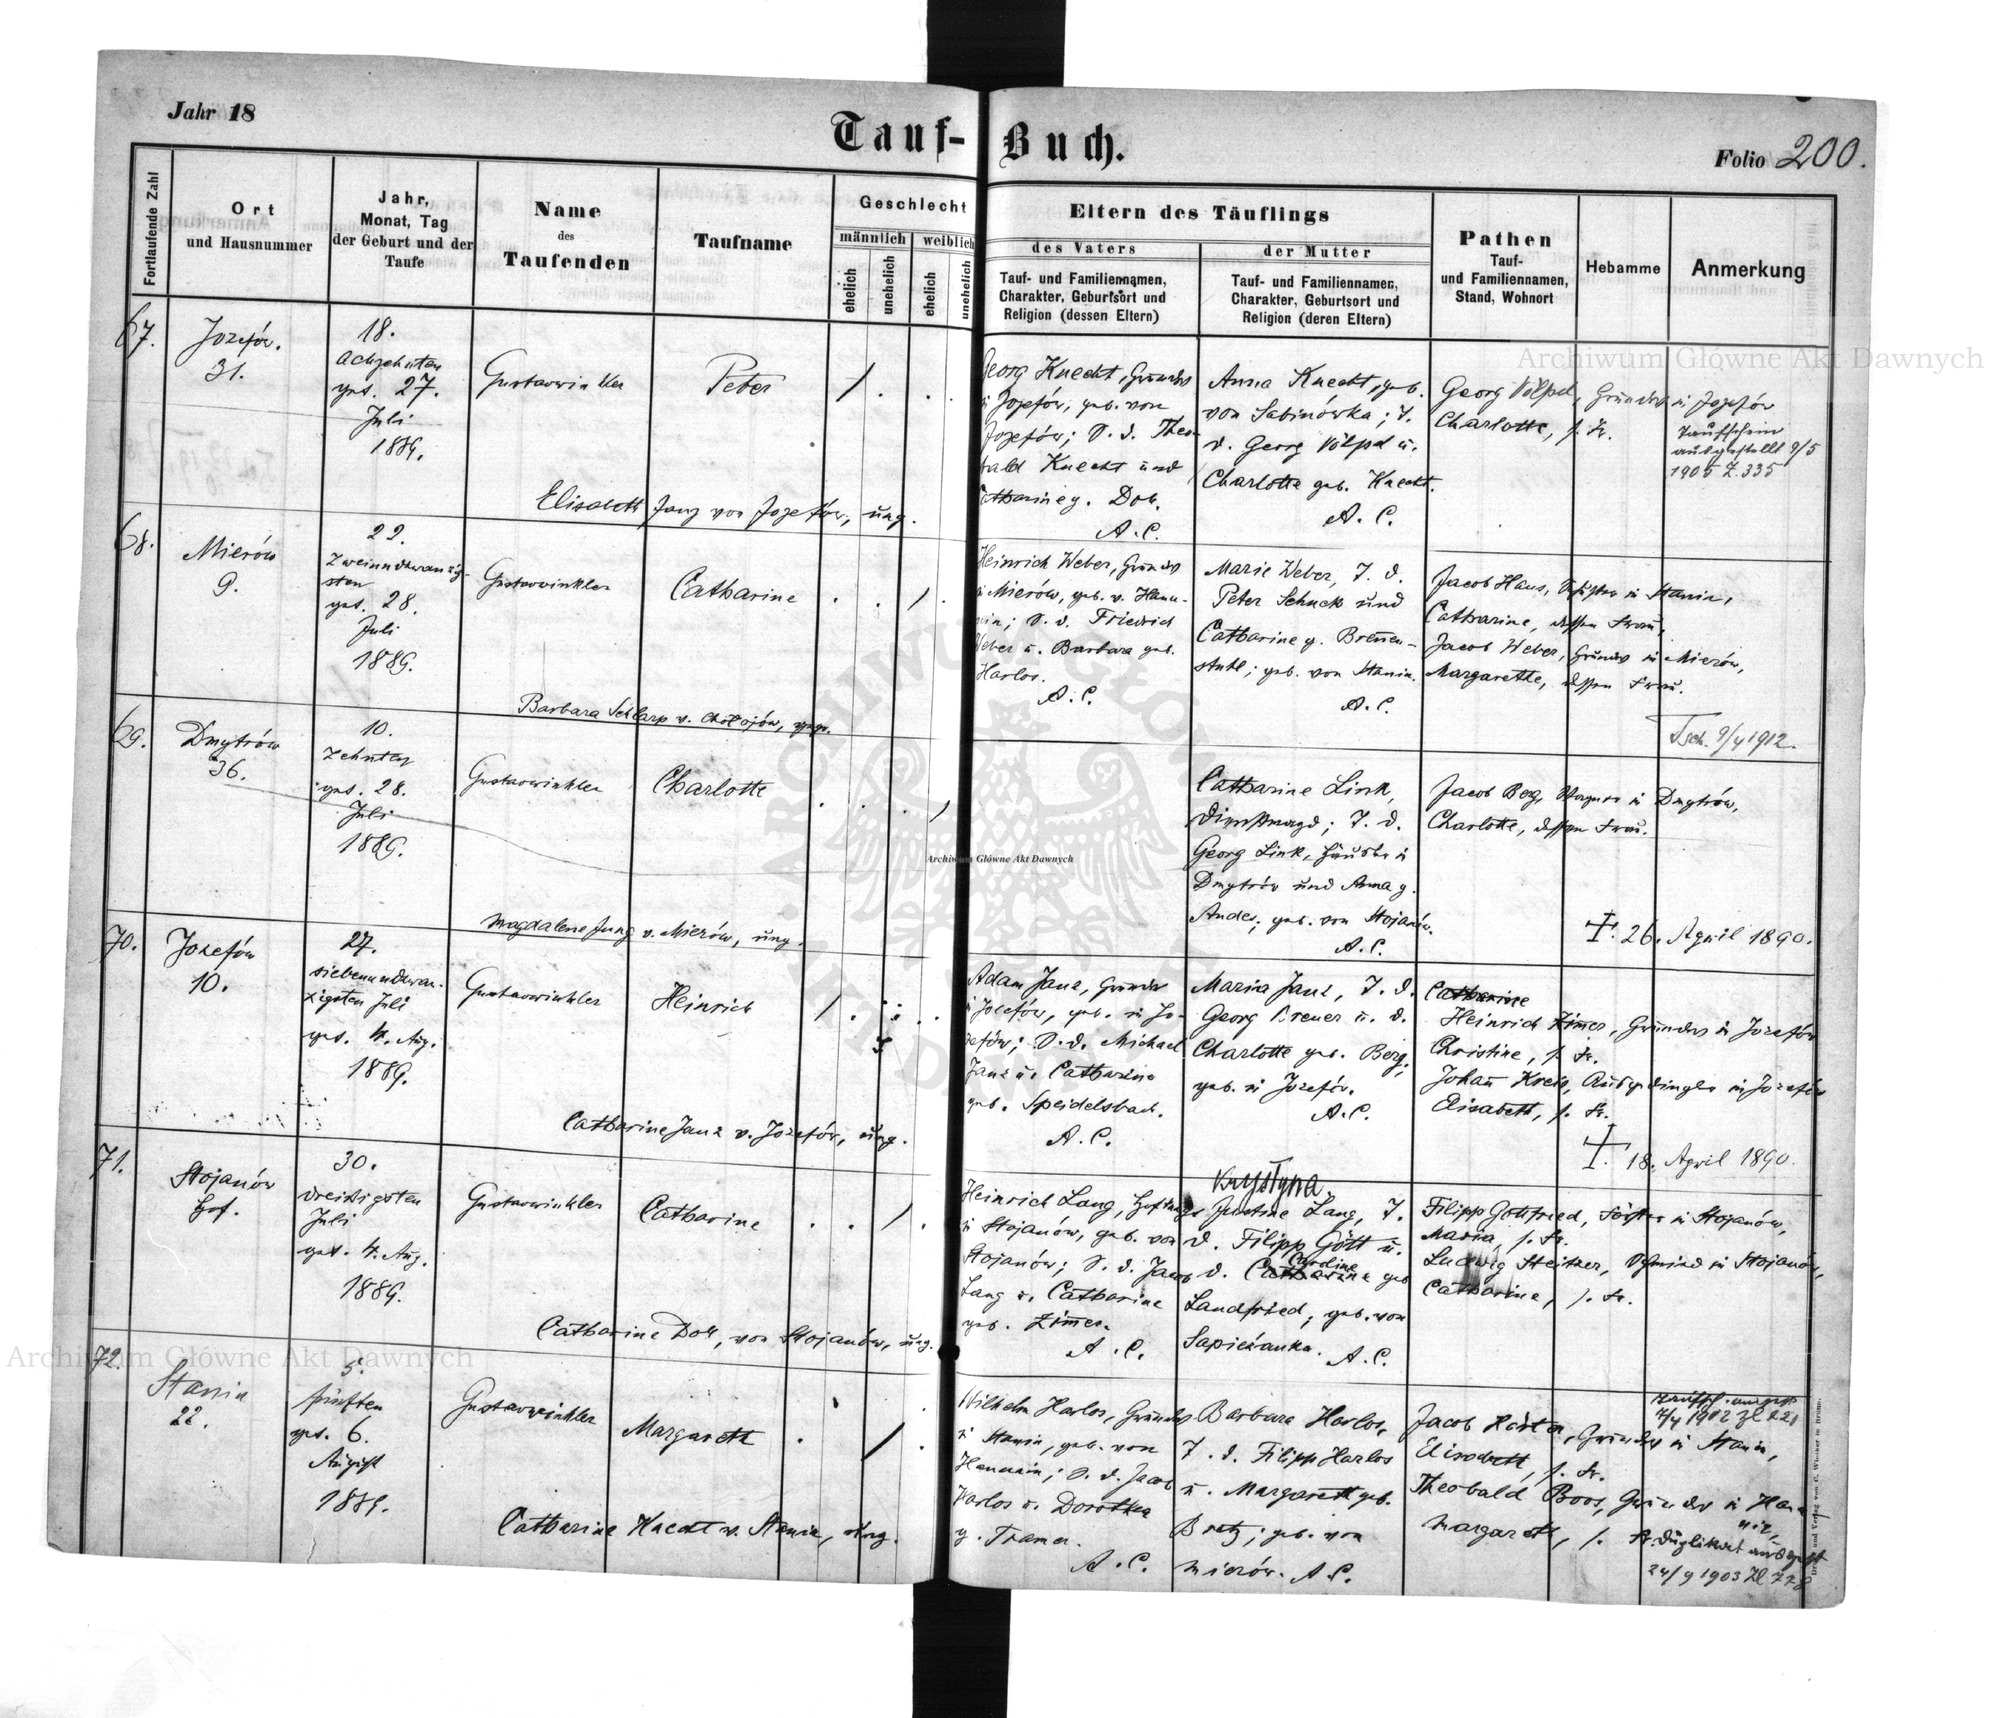 Jahr 18
Tauf-Buch.
Folio 200.
Fortlaufende Zahl
Ort
und Hausnummer
Jahr,
Monat, Tag
der Geburt und der
Taufe
Name
des
Taufenden
Taufname
Geschlecht
männlich
weiblich
ehelich
unehelich
ehelich
unehelich
Eltern des Täuflings
des Vaters
Tauf- und Familiennamen,
Charakter, Geburtsort und
Religion (dessen Eltern)
der Mutter
Tauf- und Familiennamen,
Charakter, Geburtsort und
Religion (deren Eltern)
Pathen
Tauf-
und Familiennamen,
Stand, Wohnort
Hebamme
Anmerkung
67.
Jozefów.
31.
18.
Achzehnten
get. 27.
Juli
1889.
Gustavwinkler
Peter
/ . . .
Georg Knecht, Grundw
in Jozefów, geb. von
Jozefów; S. d. Theo-
bald Knecht und
Catharine g. Doh.
A.C.
Anna Knecht, geb.
von Sabinówka; T.
d. Georg Völpel u.
Charlotte geb. Knecht.
A.C.
Georg Völpel, Grundw in Jozefów
Charlotte, s. Fr.
Taufschein
ausgestellt 9/5
1905 Z. 335
Elisabeth Janz von Jozefów, ung.
68.
Mierów
9.
22.
Zweiundzwanzig-
sten
get. 28.
Juli
1889.
Gustavwinkler
Catharine
. . / .
Heinrich Weber, Grundw
in Mierów, geb. v. Hanu-
nin; S. d. Friedrich
Weber u. Barbara geb.
Harlos.
A.C.
Marie Weber, T. d.
Peter Schuck und
Catharine g. Brenen-
stuhl; geb. von Stanin.
A.C.
Jacob Haus, in Stanin,
Catharine, dessen Frau,
Jacob Weber, Grundw in Mierów,
Margarethe, dessen Frau.
Barbara Schlarp v. Chołojów,
Tsch. 9/4 1912.
69.
Dmytrów
36.
10.
Zehnten
get. 28.
Juli
1889.
Gustavwinkler
Charlotte
. . . /
Catharine Link,
Dienstmagd; T. d.
Georg Link, Häusler in
Dmytrów und Anna g.
Andes; geb. von Stojanów.
A.C.
Jacob Berg, Wagner in Dmytrów,
Charlotte, dessen Frau.
Magdalene Jung v. Mierów, ung.
†. 26. April 1890.
70.
Jozefów
10.
27.
siebenundzwan-
zigsten Juli
get. 4. Aug.
1889.
Gustavwinkler
Heinrich
/ . . .
Adam Janz, Grundw
in Jozefów, geb. in Jo-
zefów; S. d. Michael
Janz u. Catharine
geb. Speidelsbach.
A.C.
Maria Janz, T. d.
Georg Breuer u. d.
Charlotte geb. Berg;
geb. in Jozefów.
A.C.
Catharine
Heinrich Zimer, Grundw in Jozefów
Christine, s. Fr.
Johan Kreis, Ausgedingler in Jozefów
Elisabeth, s. Fr.
Catharine Janz v. Jozefów, ung.
†. 18. April 1890.
71.
Stojanów
Hof.
30.
dreisigsten
Juli
get. 4. Aug.
1889.
Gustavwinkler
Catharine
. . / .
Heinrich Lang,
in Stojanów, geb. von
Stojanów; S. d. Jacob
Lang u. Catharine
geb. Zimer.
A.C.
Krystyna
Justine Lang, T.
d. Filipp Gött u.
Caroline
d. Catharine geb
Landfried; geb. von
Sapieżanka. A.C.
Filipp Gottfried, Förster in Stojanów,
Maria, s. Fr.
Ludwig Steitzer, Schmied in Stojanów,
Catharine, s. Fr.
Catharine Doll, von Stojanów, ung.
72.
Stanin
22.
5.
fünften
get. 6.
August
1889.
Gustavwinkler
Margareth
. . / .
Wilhelm Harlos, Grundw
in Stanin, geb. von
Hanunin; S. d. Jacob
Harlos u. Dorothea
g. Tramer.
A.C.
Barbara Harlos,
T. d. Filipp Harlos
u. Margareth geb.
Bretz; geb. von
Mierów. A.C.
Jacob Köster, Grundw in Stanin,
Elisabeth, s. Fr.
Theobald Boos, Grundw in Hanu
nin,
Margareth, s. Fr.
7/4 1902 Zl 221
Duplikat ausgest
24/9 1903 Zl 778
Catharine Knecht v. Stanin, ung.
Archiwum Główne Akt Dawnych
Archiwum Główne Akt Dawnych
Archiwum Główne Akt Dawnych